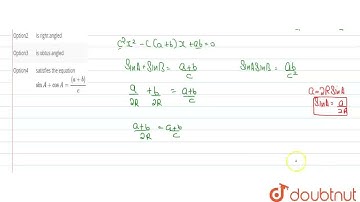 Option2 is right angled
Option3 is obtus angled
Option4 satisfies the equation
sin A + cos A = (a+b)/c
c²x² - c(a+b)x + ab = 0
SinA + SinB = (a+b)/c SinA SinB = ab/c²
a/2R + b/2R = (a+b)/c
a = 2R SinA
SinA = a/2R
(a+b)/2R = (a+b)/c
doubtnut